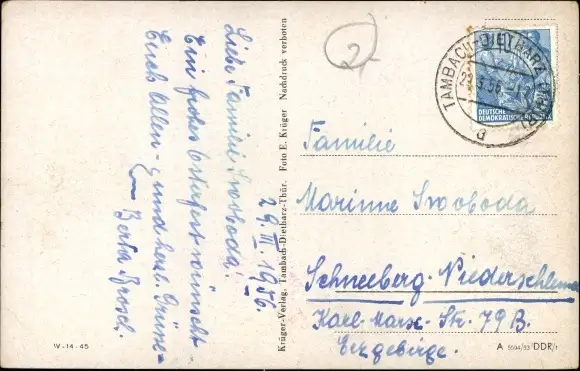 29. III. 1956.
Liebe Familie Swoboda!
Ein frohes Osterfest wünscht
Euch allen - und herzl. Grüsse -
Berta
Krüger-Verlag, Tambach-Dietharz-Thür. Foto E. Krüger Nachdruck verboten
W-14-45
2
TAMBACH-DIETHARZ
DEUTSCHE
DEMOKRATISCHE REPUBLIK
Familie
Swoboda
Schneeberg-Niederschlema
Karl-Marx-Str. 79 B.
Erzgebirge.
A 5594/53/DDR/1